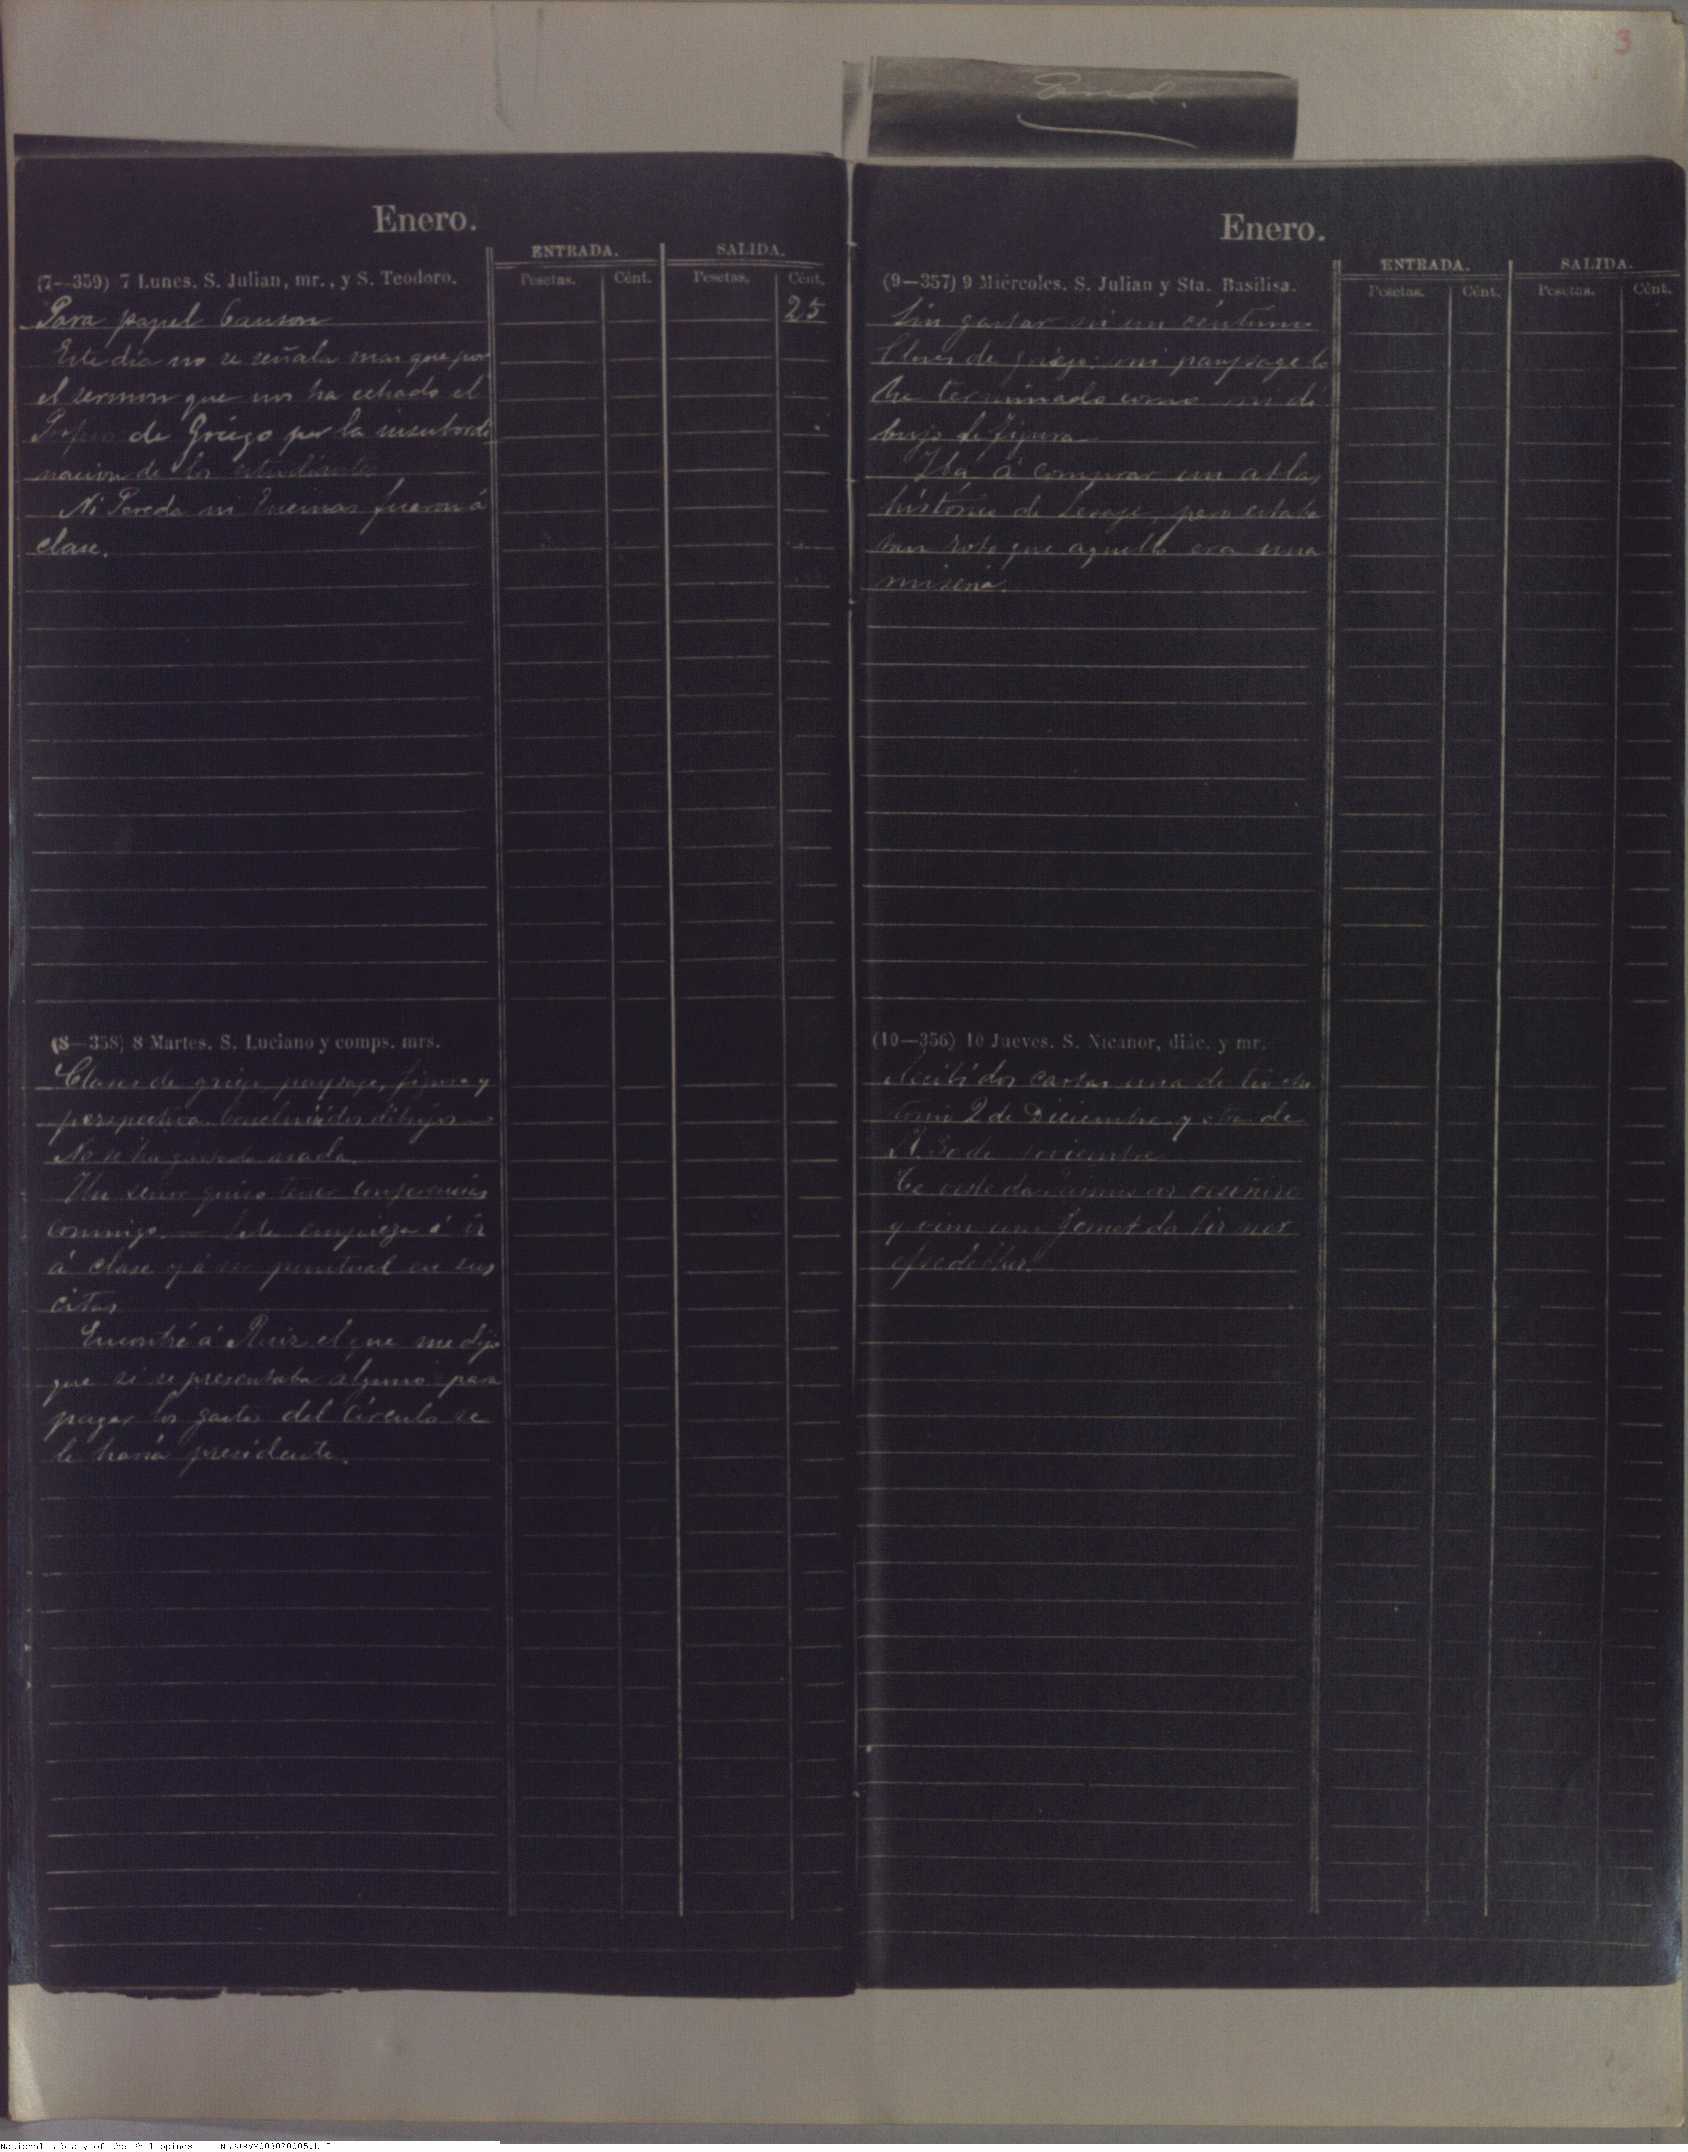 3
Enero.
ENTRADA. SALIDA.
(7--359) 7 Lunes. S. Julian, mr., y S. Teodoro. Pesetas. Cént. Pesetas. Cént.
Para papel Canson 25
Este dia no se señala mas que por
el sermon que nos ha echado el
de Griego por la insubordi
nacion de los estudiantes
Ni Pereda ni Encinas fueron á
clase.
(8—358) 8 Martes. S. Luciano y comps. mrs.
Clases de griego paysage, figura y
perspectiva. dos dibujos
No se ha gastado nada.
Un señor quiso tener conferencias
conmigo. — empieza á ir
á clase y á ser puntual en sus
citas
Encontré á Ruiz el que me dijo
que si se presentaba alguno para
pagar los gastos del Círculo se
le haria presidente.
Enero.
ENTRADA. SALIDA.
(9—357) 9 Miércoles. S. Julian y Sta. Basilisa. Pesetas. Cént. Pesetas. Cént.
Sin gastar ni un céntimo
Clases de griego: mi paysage lo
he terminado como mi di
bujo de figura
Iba á comprar un atlas
histórico de Lesage, pero estaba
tan roto que aquello era una
miseria.
(10—356) 10 Jueves. S. Nicanor, diác. y mr.
Recibí dos cartas una de tio
2 de Diciembre y otra de
30 de noviembre
y